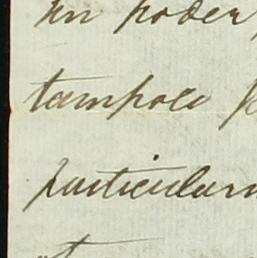 un poder
tampoco
particularm